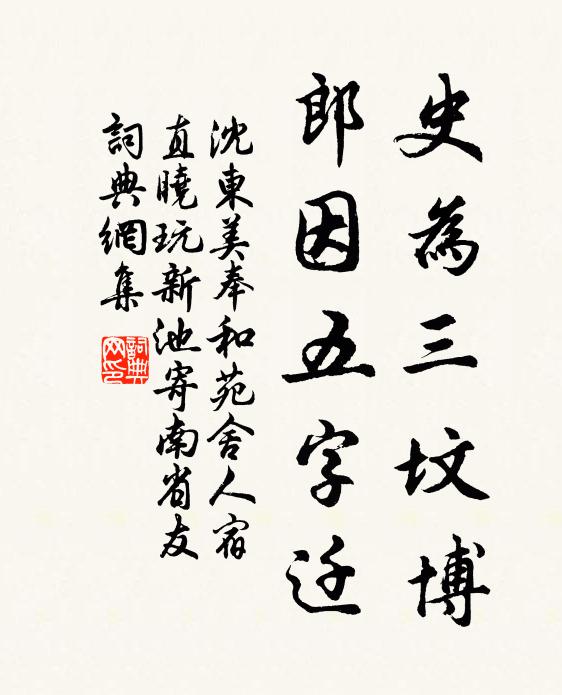 史為三坟博
郎因五字迁
沈東美奉和苑舍人宿
直曉玩新池寄南省友
詞典網集
詞典
网印